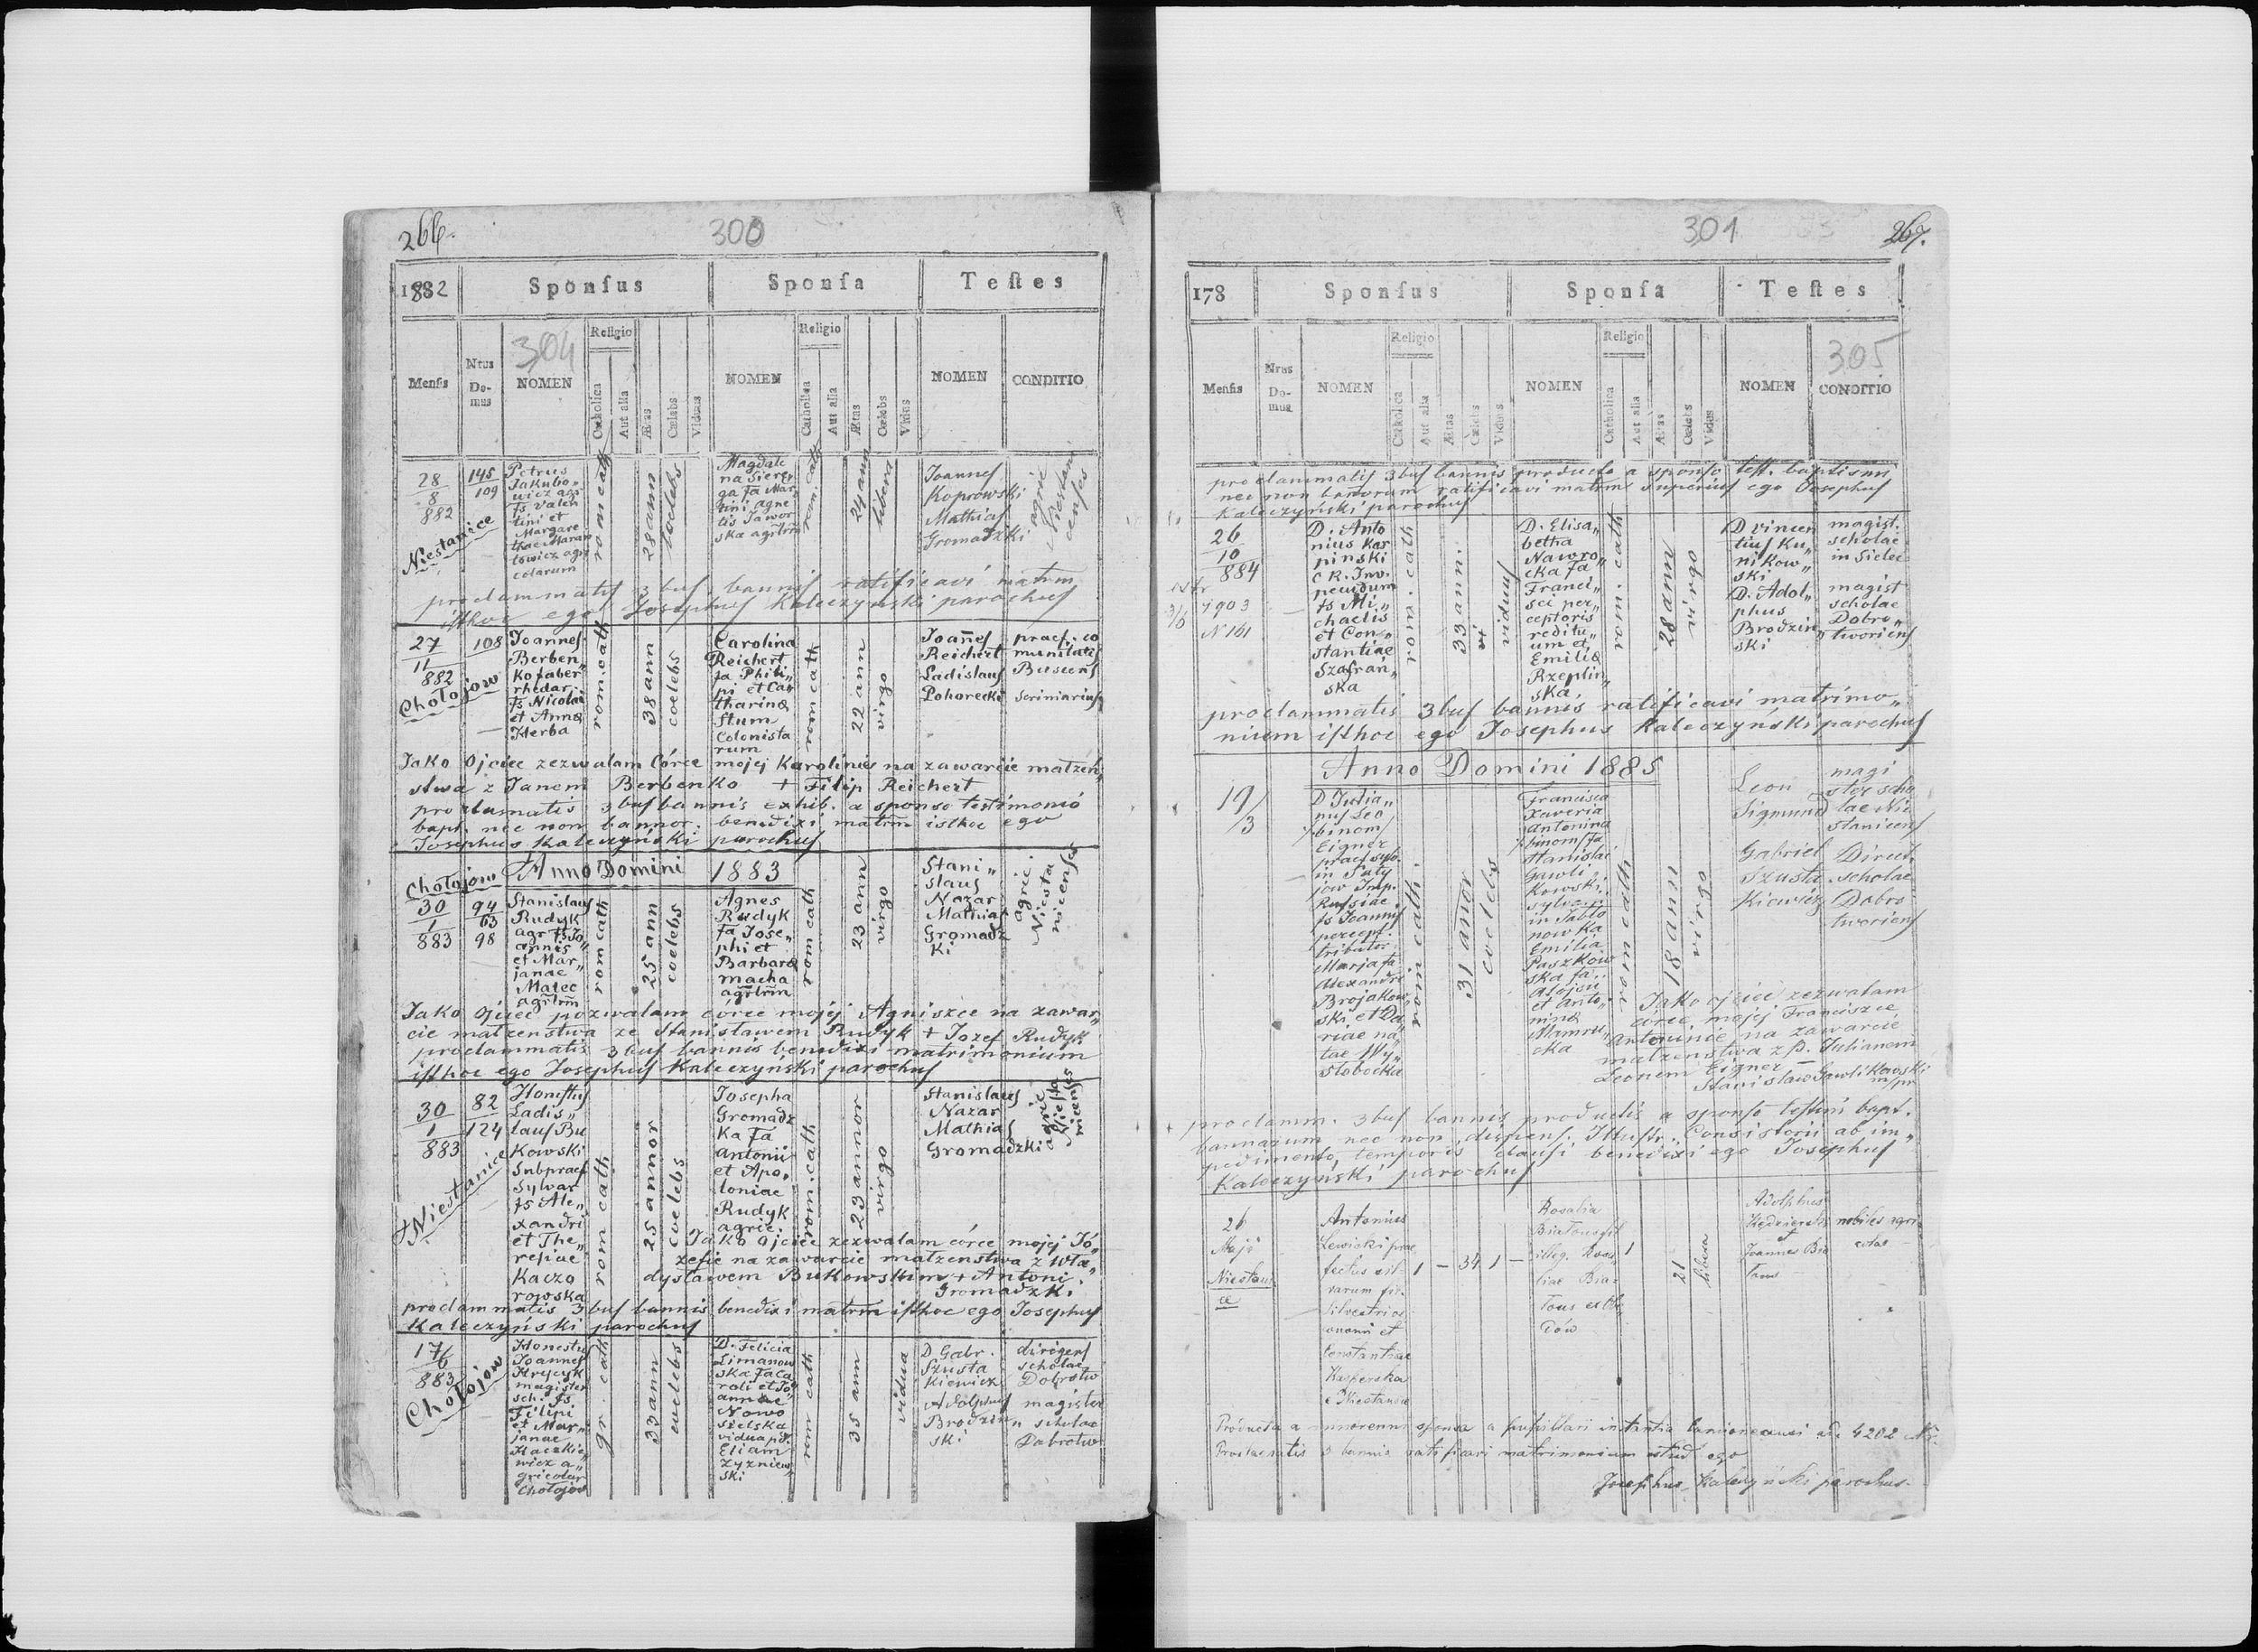 266.
300
1882
Sponsus
Sponsa
Testes
Mensis
Nrus Do-mus
304
NOMEN
Religio
Catholica
Aut alia
Ætas
Cælebs
Viduus
NOMEN
Religio
Catholica
Aut alia
Ætas
Cælebs
Vidua
NOMEN
CONDITIO
28
8
882
Niestanice
145
109
Petrus
Jakubo„
wicz agr
fs Valen
tini et
Margare
thae Maran
towicz agri
colarum
rom cath
28 ann
coelebs
Magdale
na Siere
ga fa Mar
tini agne
tis Jawor
ska agrlrm
rom. cath
24 ann
libera
Joannes
Koprowski
Mathias
Gromadzki
agric
Niestani
censes
proclammatis 3 bus bannis ratificavi matrm
isthoc ego Josephus Kaleczyński parochus
27
11
882
Chołojow
108
Joannes
Berben„
ko faber
rhedar.
fs Nicolai
et Anna
Herba
rom. cath
38 ann
coelebs
Carolina
Reichert
fa Phili„
pi et Ca„
tharina
Stum
Colonista
rum
rom cath
22 ann
virgo
Joannes
Reichert
Ladislaus
Pohorecki
praef. co
munitatis
Buscens
scriniarius
Jako Ojciec zezwalam Córce mojej Karolinie na zawarcie małżeń„
stwa z Janem Berbenko + Filip Reichert
proclamatis 3 bus bannis exhib. a sponso testimonio
bapt. nec non bannor. benedixi matrm isthoc ego
Josephus Kaleczyński parochus
Chołojow
Anno Domini 1883
30
1
883
94
63
98
Stanislaus
Rudyk
agr fs Jo„
annis
et Mar„
janae
Malec
agrlrm
rom cath
25 ann
coelebs
Agnes
Rudyk
fa Jose„
phi et
Barbara
macha
agrlrm
rom cath
23 ann
virgo
Stani„
slaus
Nazar
Mathias
Gromadz
ki
agric
Niesta
nicenses
Jako Ojciec pozwalam córce mojej Agniszce na zawar„
cie małżenstwa ze Stanisławem Rudyk + Jozef Rudyk
proclammatis 3 bus bannis benedixi matrimonium
isthoc ego Josephus Kaleczyński parochus
30
1
883
Niestanice
82
124
Honestus
Ladis„
laus Bu
kowski
Subpraef
Sylvar
fs Ale„
xandri
et The„
resiae
Kaczo
rowska
rom cath
25 annor
coelebs
Josepha
Gromadz
ka fa
Antonii
et Apo„
loniae
Rudyk
agric.
rom. cath
23 annor
virgo
Stanislaus
Nazar
Mathias
Gromadzki
agric
Niesta
nicenses
Jako Ojciec zezwalam córce mojej Jó„
zefie na zawarcie małżenstwa z Wła„
dysławem Bukowskim + Antoni
Gromadzki
proclammatis 3 bus bannis benedixi matrm isthoc ego Josephus
Kaleczyński parochus
17/6
883
Chołojow
Honestus
Joannes
Hrycyk
magister
sch. fs
Filipi
et Mar„
janae
Haczkie„
wicz a„
gricolar
Chołojow
gr. cath
33 ann
coelebs
D. Felicia
Limanow
ska fa Ca
roli et Jo
annae
Nowo
sielska
vidua p.
Eliam
Zyzniew„
ski
rom cath
35 ann
vidua
D Gabr.
Szusta
kiewicz
Adolphus
Brodzin„
ski
dirigens
scholae
Dobrotw
magister
scholae
Dobrotw
301
267.
178
Sponsus
Sponsa
Testes
Mensis
Nrus Do-mus
NOMEN
Religio
Catholica
Aut alia
Ætas
Cælebs
Viduus
NOMEN
Religio
Catholica
Aut alia
Ætas
Cælebs
Vidua
NOMEN
305
CONDITIO
proclammatis 3 bus bannis producto a sponso test. baptismi
nec non bannorum ratificavi matrm superius ego Josephus
Kaleczyński parochus
26
10
884
3/6 1903
N 161
D. Anto
nius Kar
pinski
C R. Inv.
pecudum
fs Mi„
chaelis
et Con„
stantiae
Szafrań„
ska
rom. cath
33 ann.
vi
viduus
D. Elisa„
betha
Nawro„
cka fa
Franci„
sci per„
ceptoris
reditu„
um et
Emilia
Rzeplin„
ska
rom. cath
28 ann
virgo
D vincen
tius Ku„
nikow„
ski
D. Adol„
phus
Brodzin„
ski
magist.
scholae
in Sielec
magist
scholae
Dobro„
tworiens
proclammatis 3 bus bannis ratificavi matrimo„
nium isthoc ego Josephus Kaleczyński parochus
Anno Domini 1885
19/
/3
D Julia„
nus Leo
binom
Eigner
praef syl.
in Paty
jow Imp.
Russiae
fs Joannis
percept.
tributor
Maria fa
Alexandri
Brojakow
ski et Da
riae na
tae Wy„
słobocka
rom cath.
31 anor
coelebs
Francisca
Xaveria
Antonina
binom fa
Stanislai
Gawli„
kowski
sylvar
in Jabło
nowka
Emilia
Paszkow
ska fa
Aloisii
et Anto„
nina
Mamru„
cka
rom cath
18 ann
virgo
Leon
Sigmund
Gabriel
Szusta
kiewicz
magi
ster scho
lae Nie
stanicens
Direct.
scholae
Dobro
tworiens
Jako ojciec zezwalam
córce mojej Franciszce
Antoninie na zawarcie
małżenstwa z P. Julianem
Leonem Eigner
Stanisław Gawlikowski
m/pr
proclamm. 3 bus bannis productis a sponso testim bapt.
bannarum nec non dispens. Illustr„ Consistorii ab im„
pedimento temporis clausi benedixi ego Josephus
Kaleczyński parochus
26
Maji
Niestani
ce
Antonius
Lewicki prae
fectus sil
varum fil.
Silvestri
et
Constantiae
Kasperska
e Niestanice
1
–
34
1
–
Rosalia
illeg. Rosa
liae Bia
1
21
libera
Adolphus
Kędzierski
et
Joannes
nobiles agri
colae
Producta a minorenni sponsa a pupillari instantia 4202
Proclamatis 3 bannis ratificavi matrimonium istud ego
Josephus Kaleczyński parochus.